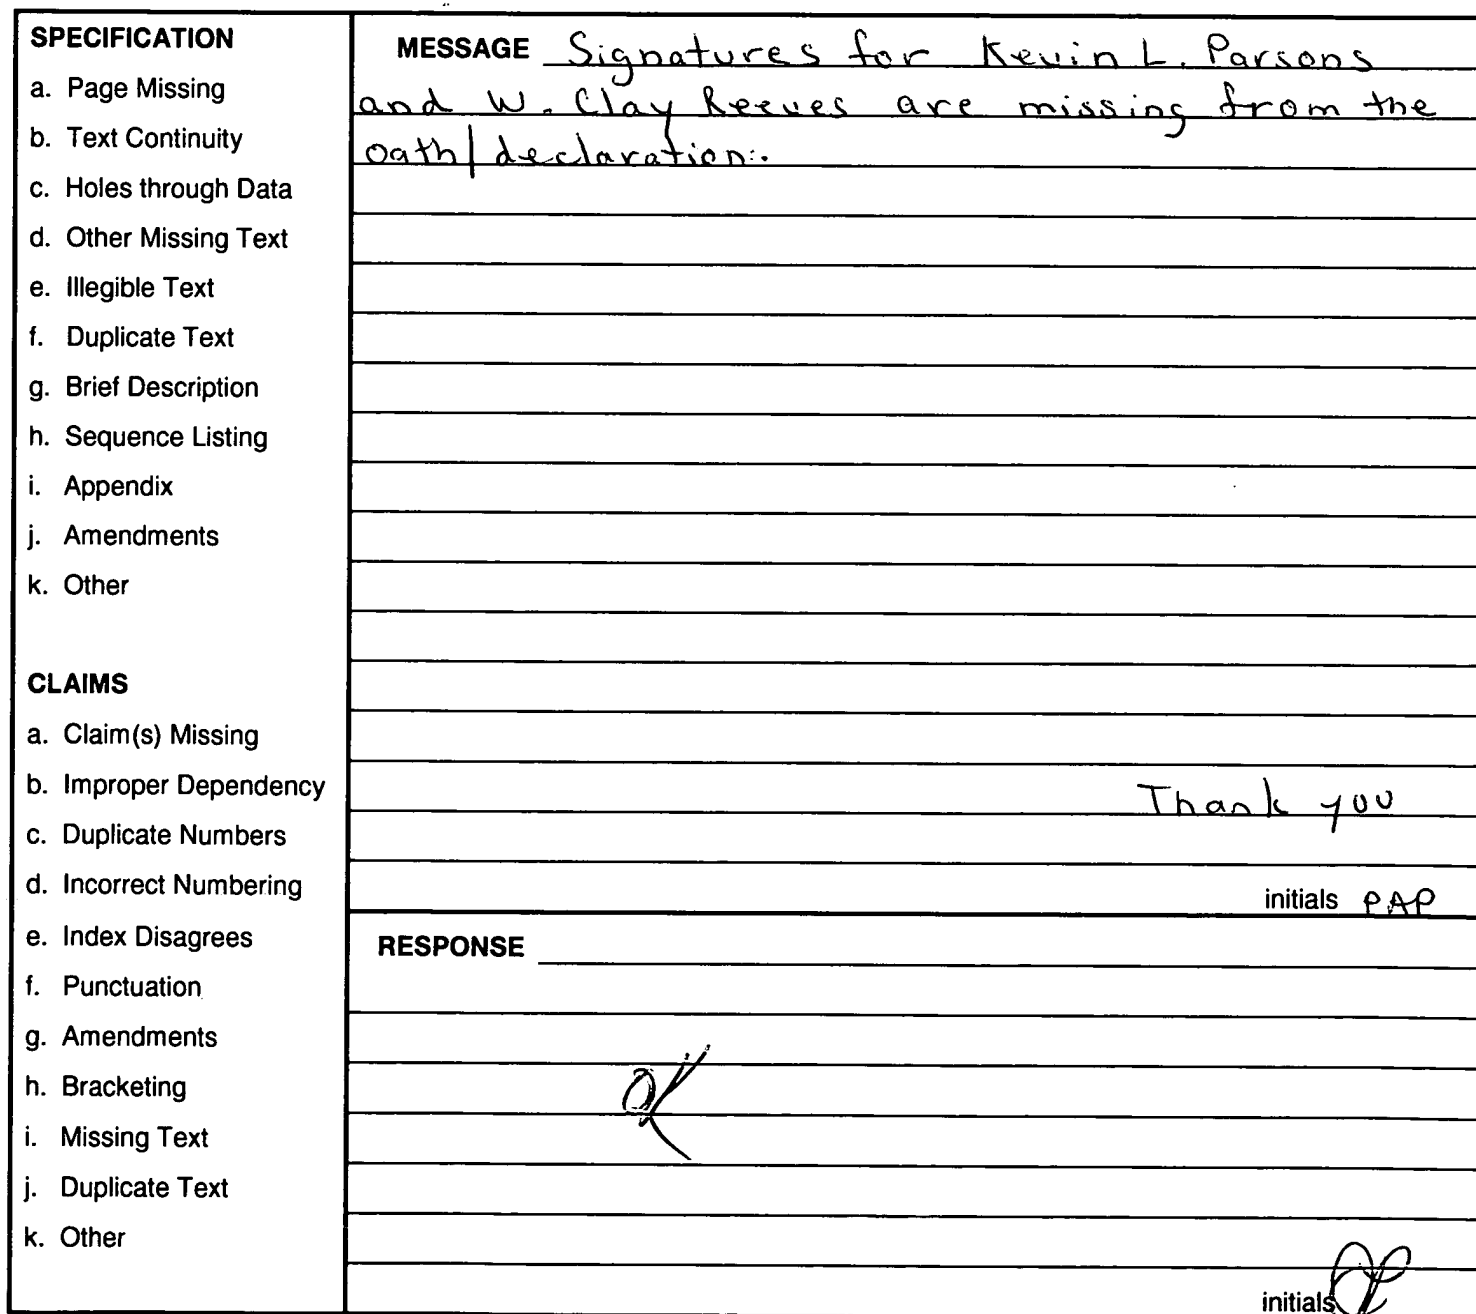 SPECIFICATION
a. Page Missing
b. Text Continuity
c. Holes through Data
d. Other Missing Text
e. Illegible Text
f. Duplicate Text
g. Brief Description
h. Sequence Listing
i. Appendix
j. Amendments
k. Other
CLAIMS
a. Claim(s) Missing
b. Improper Dependency
c. Duplicate Numbers
d. Incorrect Numbering
e. Index Disagrees
f. Punctuation
g. Amendments
h. Bracketing
i. Missing Text
j. Duplicate Text
k. Other
MESSAGE Signatures for Kevin L. Parsons
and W. Clay Reeves are missing from the
oath/declaration.
Thank you
initials PAP
RESPONSE
OK
initials